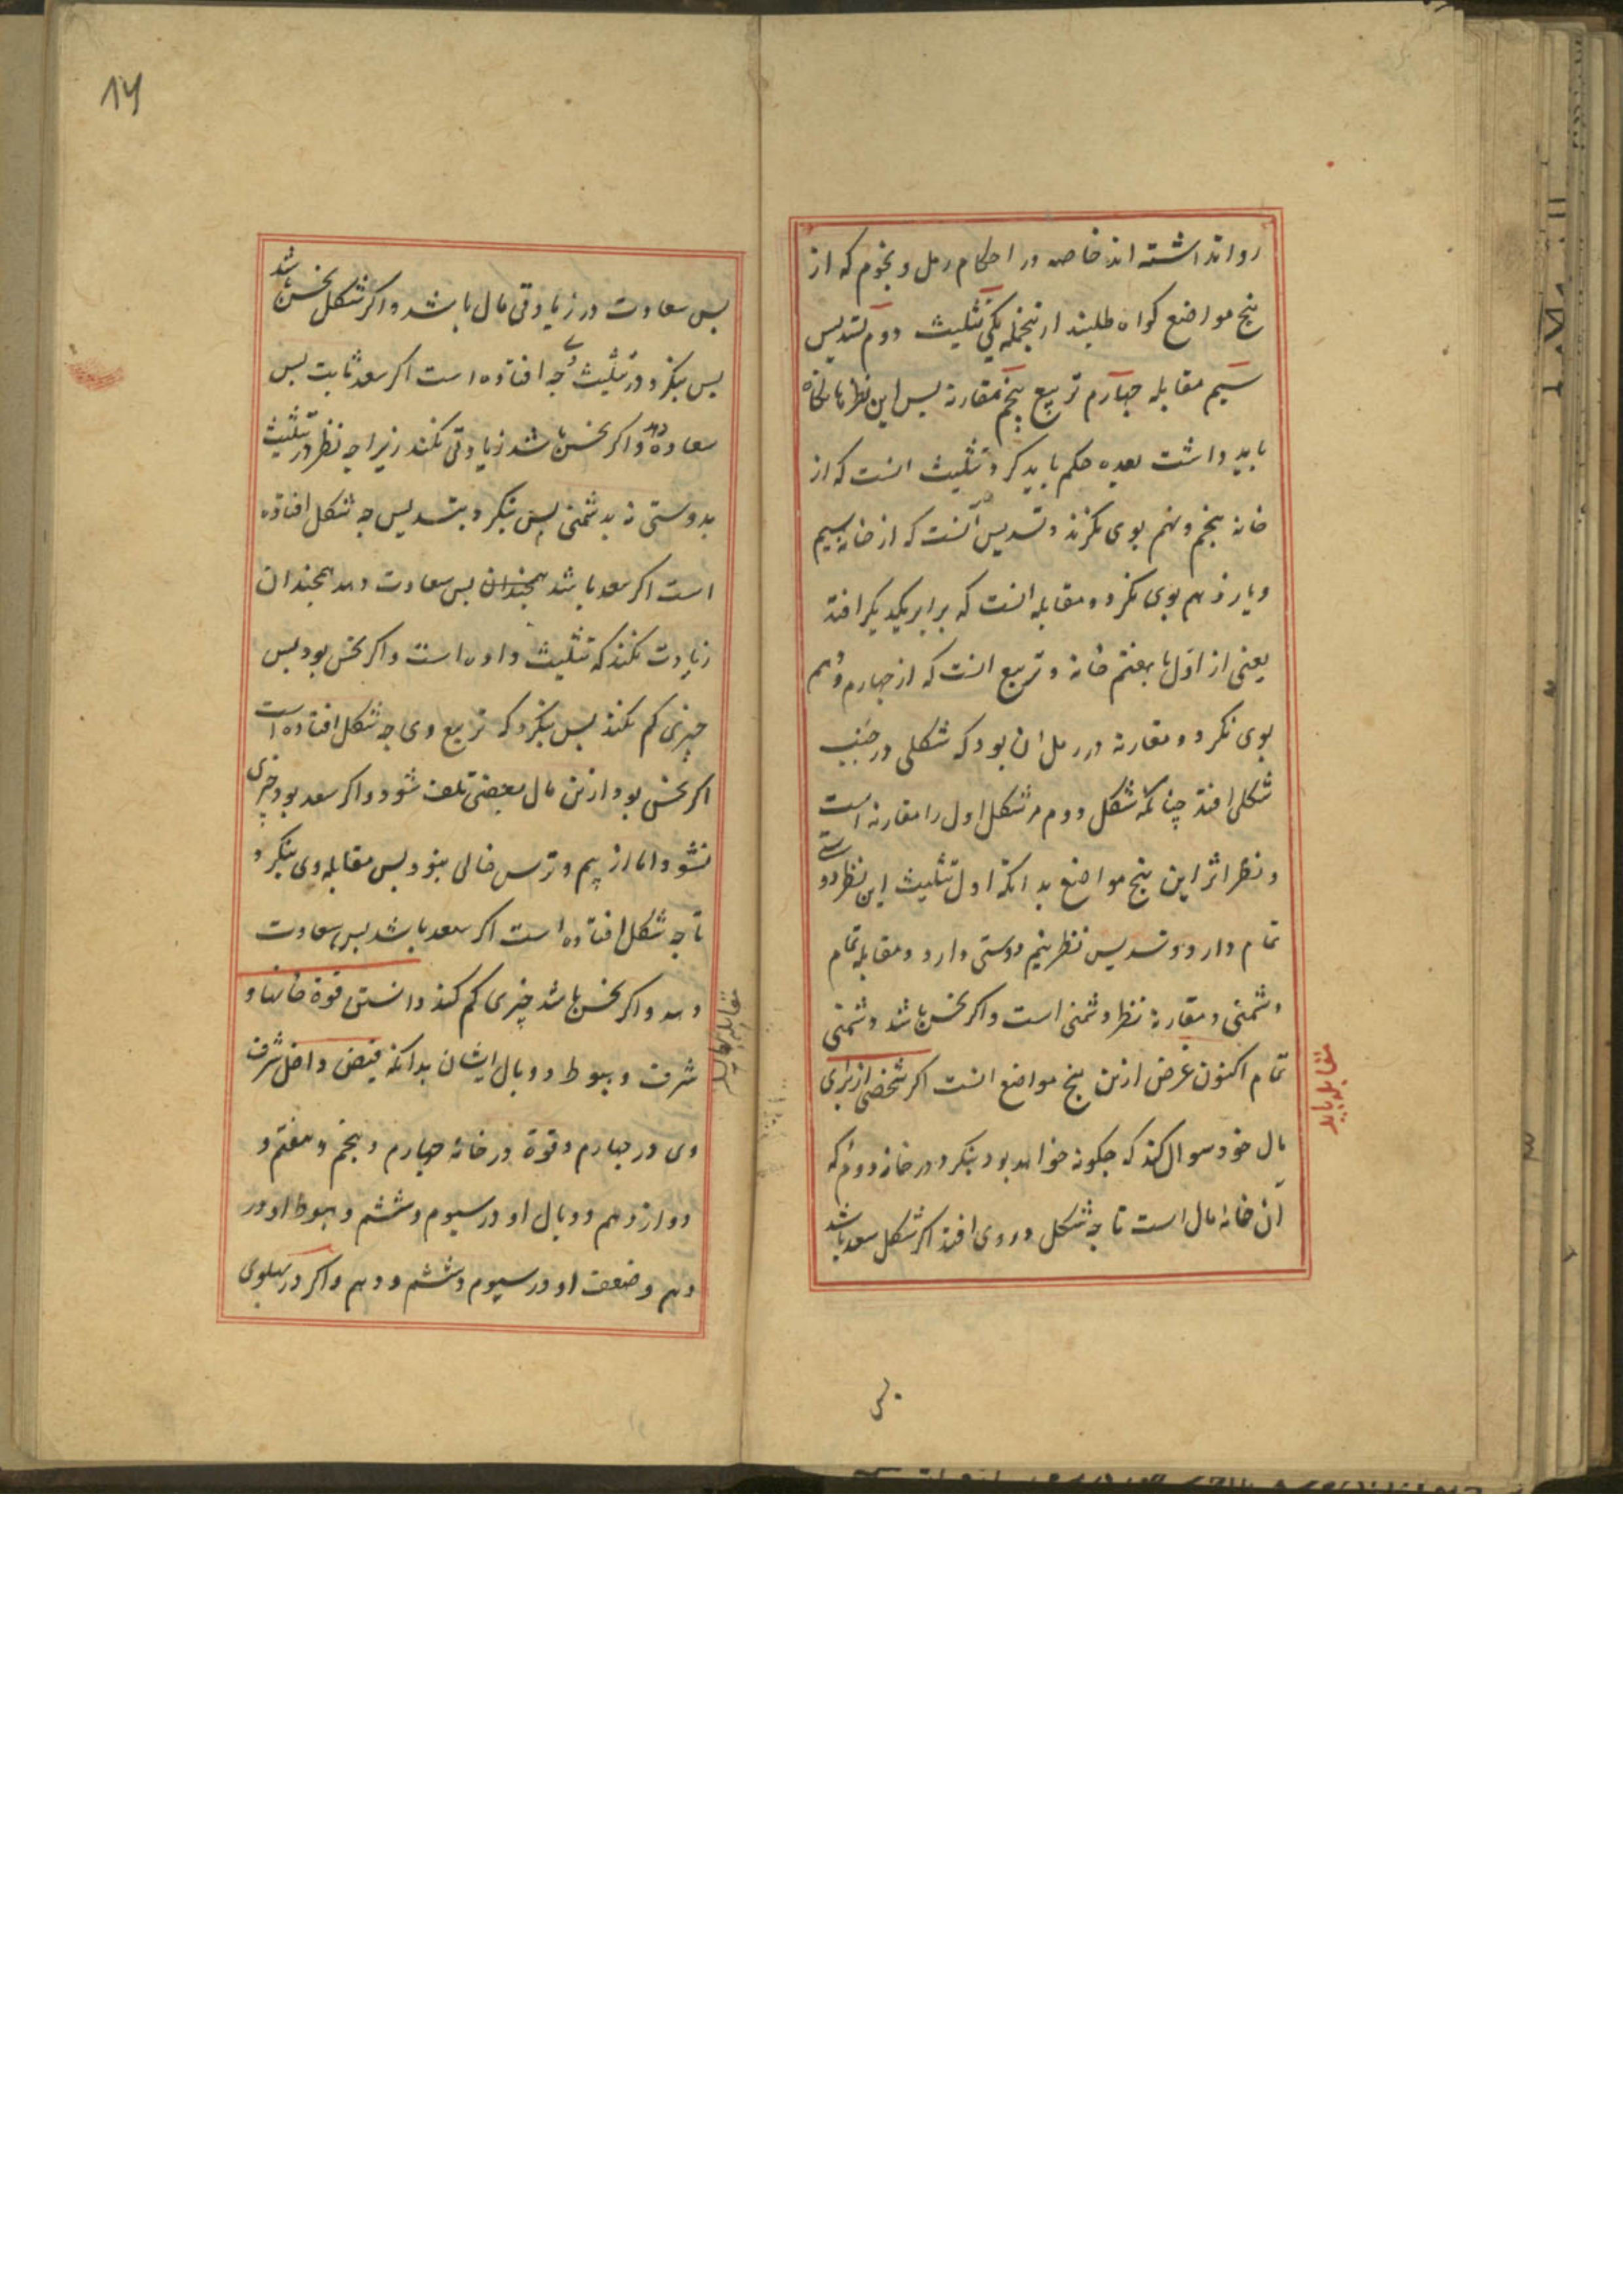 روا نداشته اند خاصه در احکام رمل و نجوم که از
پنج مواضع کواه طلبند ازینجمله یکی تثلیث دوم تسدیس
سیم مقابله چهارم تربیع پنجم مقارنه پس این نظرها نکاه
باید داشت بعده حکم باید کرد و تثلیث انست که از
خانه پنجم و نهم بوی نکرند و تسدیس آنست که از خانه سیم
و یازدهم بوی نکرد و مقابله انست که برابر یکدیکر افتد
یعنی از اول تا بهفتم خانه و تربیع انست که از چهارم و دهم
بوی نکرد و مقارنه در رمل ان بود که شکلی در جنب
شکلی افتد چنانکه شکل دوم مر شکل اول را مقارنه است
و نظر اثر این پنج مواضع بدانکه اول تثلیث این نظر دوستی
تمام دارد و تسدیس نظر نیم دوستی دارد و مقابله تمام
دشمنی و مقارنه نظر دشمنی است و اکر نحس باشد دشمنی
تمام اکنون غرض ازین پنج مواضع انست اکر شخصی از برای
مال خود سوال کند که چکونه خواهد بود بنکرد در خانه دوم که
آن خانه مال است تا چه شکل در وی افتد اکر شکل سعد باشد
مقابله باید
14
پس سعادت در زیادتی مال باشد و اکر شکل نحس باشد
پس بنکرد در تثلیث وی چه افتاده است اکر سعد ثابت پس
سعادة دهد و اکر نحس باشد زیادتی نکند زیرا چه نظر در تثلیث
بدوستی نه بدشمنی پس بنکرد بتسدیس چه شکل افتاده
است اکر سعد باشد همچندان پس سعادت دهد همچندان
زیادت نکند که تثلیث داده است و اکر نحس بود پس
چیزی کم نکند پس بنکرد که تربیع وی چه شکل افتاده است
اکر نحس بود ازین مال بعضی تلف شود و اکر سعد بود چیزی
نشود اما از بیم و ترس خالی نبود پس مقابله وی بنکرد
تا چه شکل افتاده است اکر سعد باشد پس سعادت
دهد و اکر نحس باشد چیزی کم کند دانستن قوة خانها و
شرف و هبوط و وبال ایشان بدانکه قبض داخل شرف
وی در چهارم و قوة در خانه چهارم و پنجم و هفتم و
دوازدهم و وبال او در سیوم و ششم و هبوط او در
دهم و ضعف او در سیوم و ششم و دهم و اکر در پهلوی